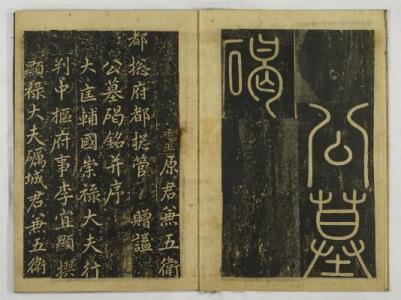 公墓
碣
原君兼五衛
都摠府都摠管 贈謚
公墓碣銘并序
大匡輔國崇祿大夫行
判中樞府事李宜顯撰
顯祿大夫礪城君兼五衛